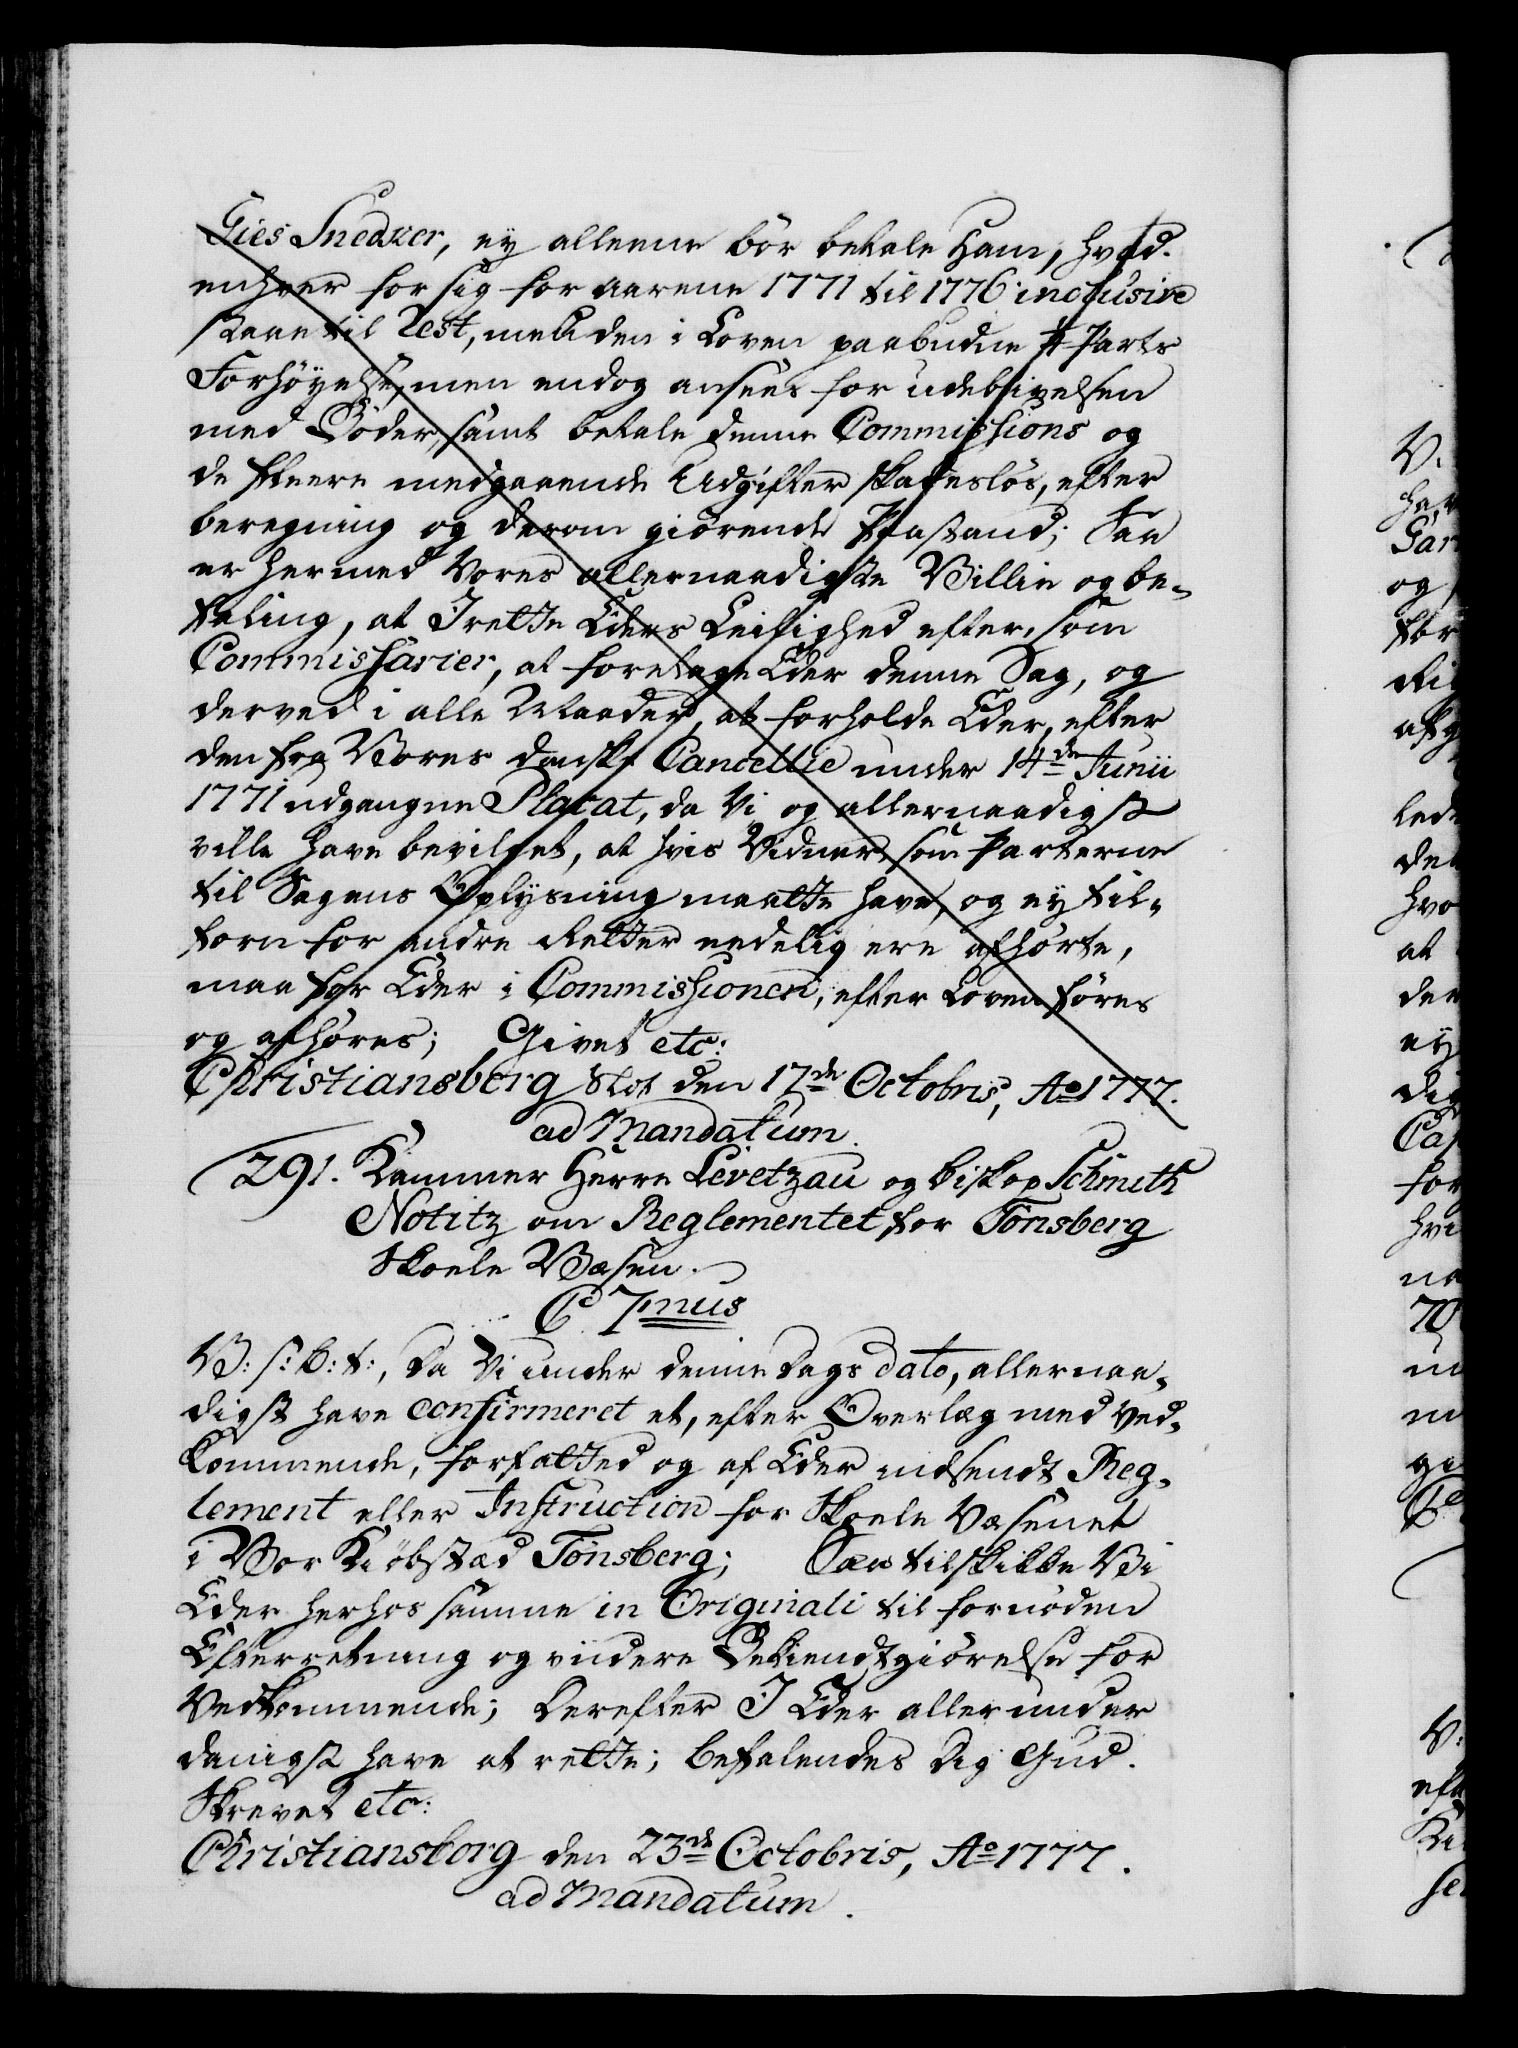 Gies Snedker, ey alleene bör betale Ham, hvad
enhver for sig for aarene 1771 til 1776 inclusive
staae til Rest, med den i Loven paabudne Parts
Forhöyelse, men endog ansees for udeblivelsen
med Böder, samt betale denne Commissions og
de fleere medgaaende Udgifter skadeslös, efter
beregning og derom giörende Paastand; Saa
er hermed Vores allernaadigste Villie og be-
faling, at I rette Eders Leilighed efter, som
Commissarier, at foretage Eder denne Sag, og
derved i alle Maader, at forholde Eder, efter
den fra Vores danske Cancellie under 14de Junii
1771 udgangne Placat, da Vi og allernaadigst
ville have bevilget, at hvis Vidner, som Parterne
til Sagens Oplysning maatte have, og ey til-
forn for andre Retter eedelig ere afhörte,
maa for Eder i Commissionen, efter Loven föres
og afhöres; Givet etc:
Christiansborg Slot den 17de Octobris, Ao 1777.
ad Mandatum.
291. Kammer Herre Levetzau og biskop Schmith
Notitz om Reglementet for Tönsberg
Skoele Væsen.
C 7mus
V: s: b: t:, Da Vi under denne Dags dato, allernaa-
digst have confirmeret et, efter Overlæg med Ved-
kommende, forfatted og af Eder indsendt Reg-
lement eller Instruction for Skoele Væsenet
i Vor Kiöbstæd Tönsberg; Saa tilskikke Vi
Eder herhos samme in Originali til fornöden
Efterretning og viidere Bekiendtgiörelse for
Vedkommende; Derefter I Eder allerunder
danigst have at rette; befalendes Dig Gud.
Skrevet etc:
Christiansborg den 23de Octobris, Ao 1777.
ad Mandatum.